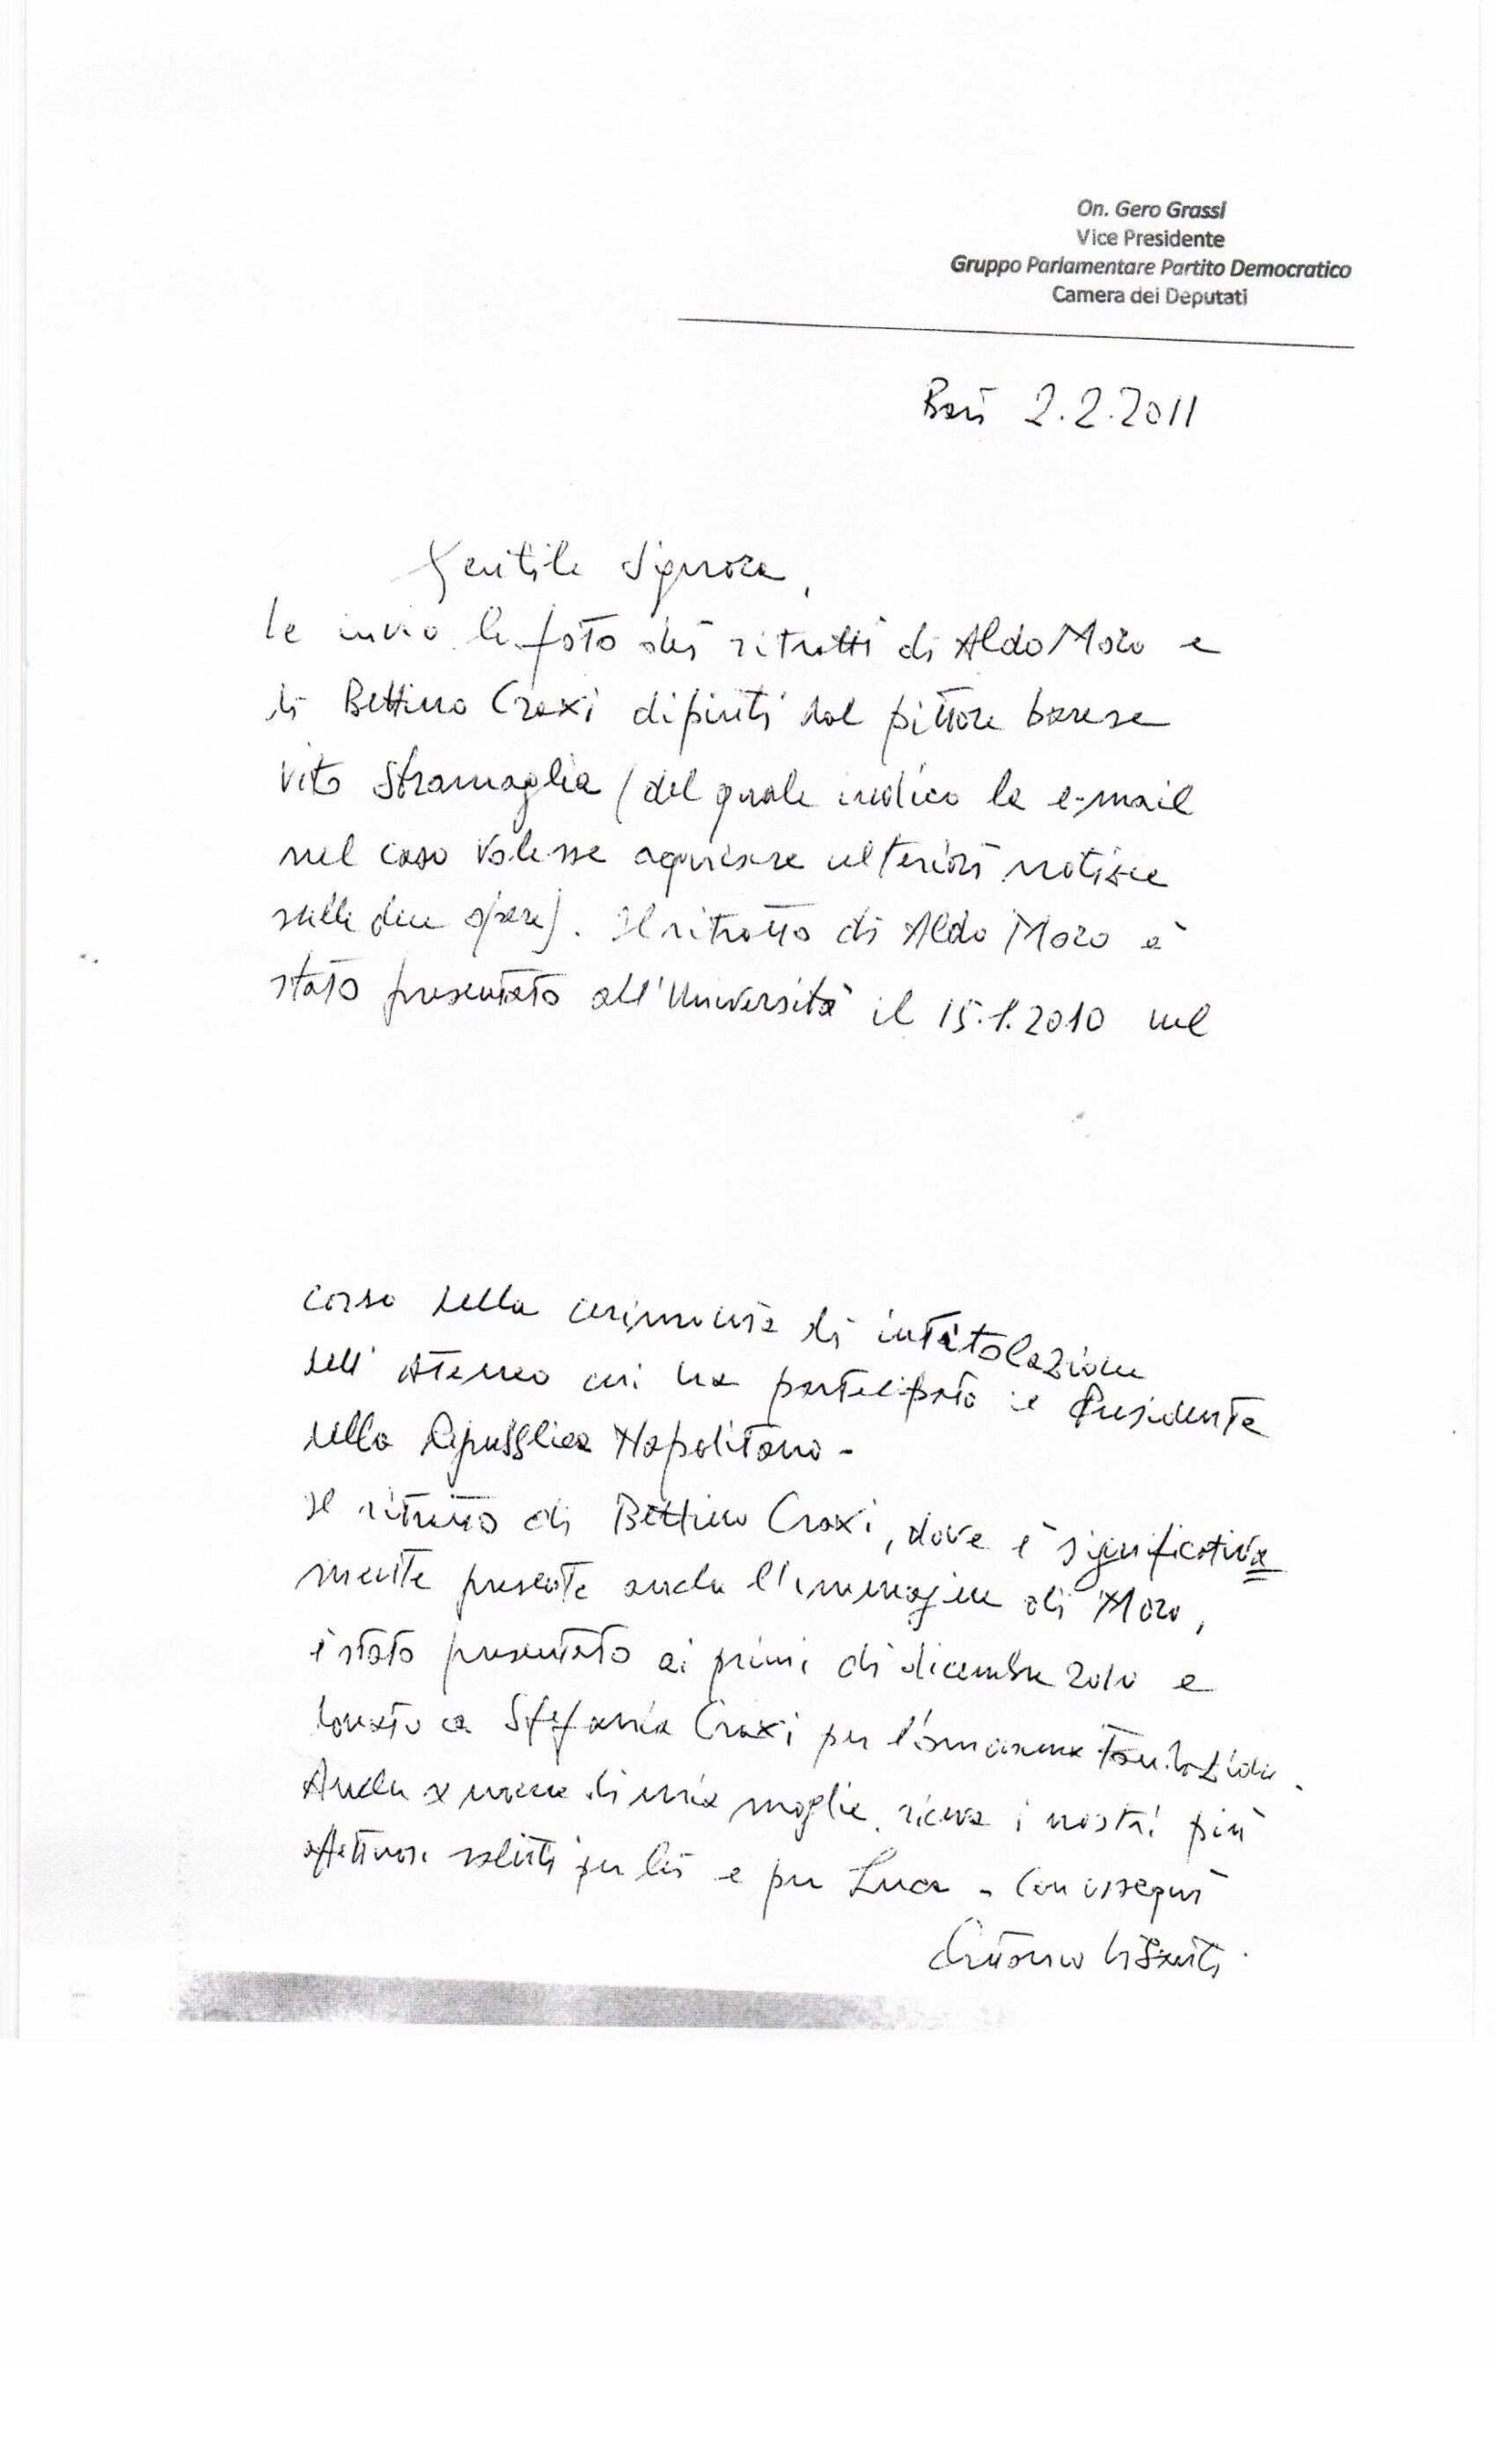 On. Gero Grassi
Vice Presidente
Gruppo Parlamentare Partito Democratico
Camera dei Deputati
Bari 2.2.2011
Gentile Signora,
le invio le foto dei ritratti di Aldo Moro e
di Bettino Craxi dipinti dal pittore barese
Vito Stramaglia (del quale indico la e-mail
nel caso volesse acquisire ulteriori notizie
sulle due opere). Il ritratto di Aldo Moro è
stato presentato all'Università il 15.1.2010 nel
corso della cerimonia di intitolazione
dell'Ateneo cui ha partecipato il Presidente
della Repubblica Napolitano -
Il ritratto di Bettino Craxi, dove è significativa
mente presente anche l'immagine di Moro,
è stato presentato ai primi di dicembre 2010 e
donato a Stefania Craxi per l'omonima Fondazione.
Anche a nome di mia moglie, riceva i nostri più
affettuosi saluti per lei e per Luca - Con ossequi
Antonio